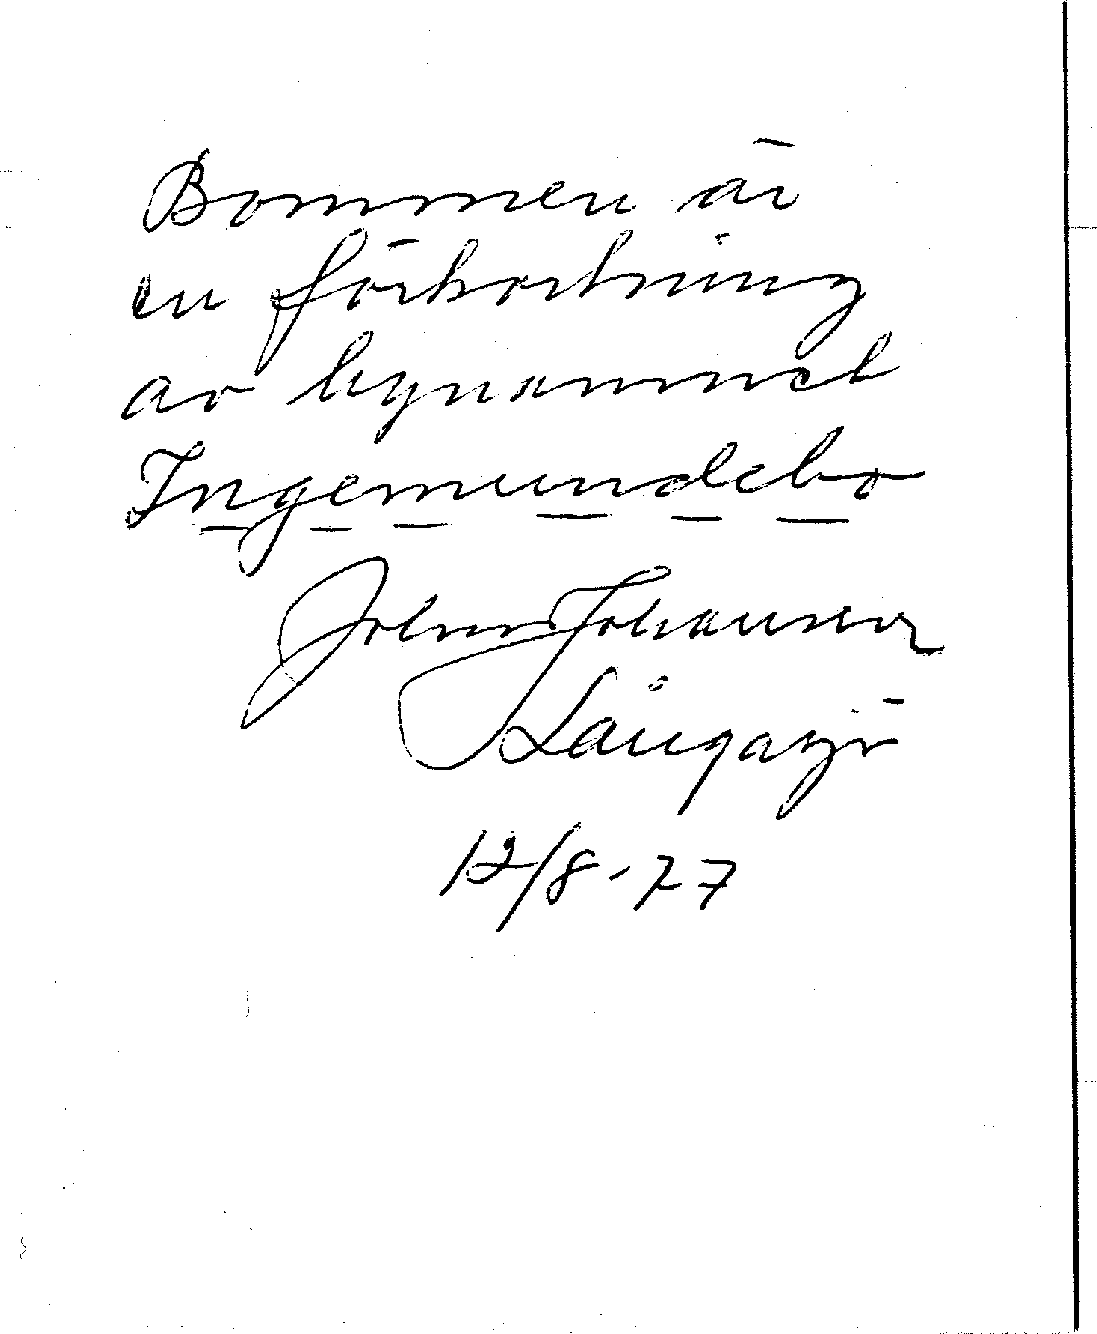 Bommen är
en förkortning
av bynamnet
Ingemundebo
John Johansson
Långasjö
12/8-77